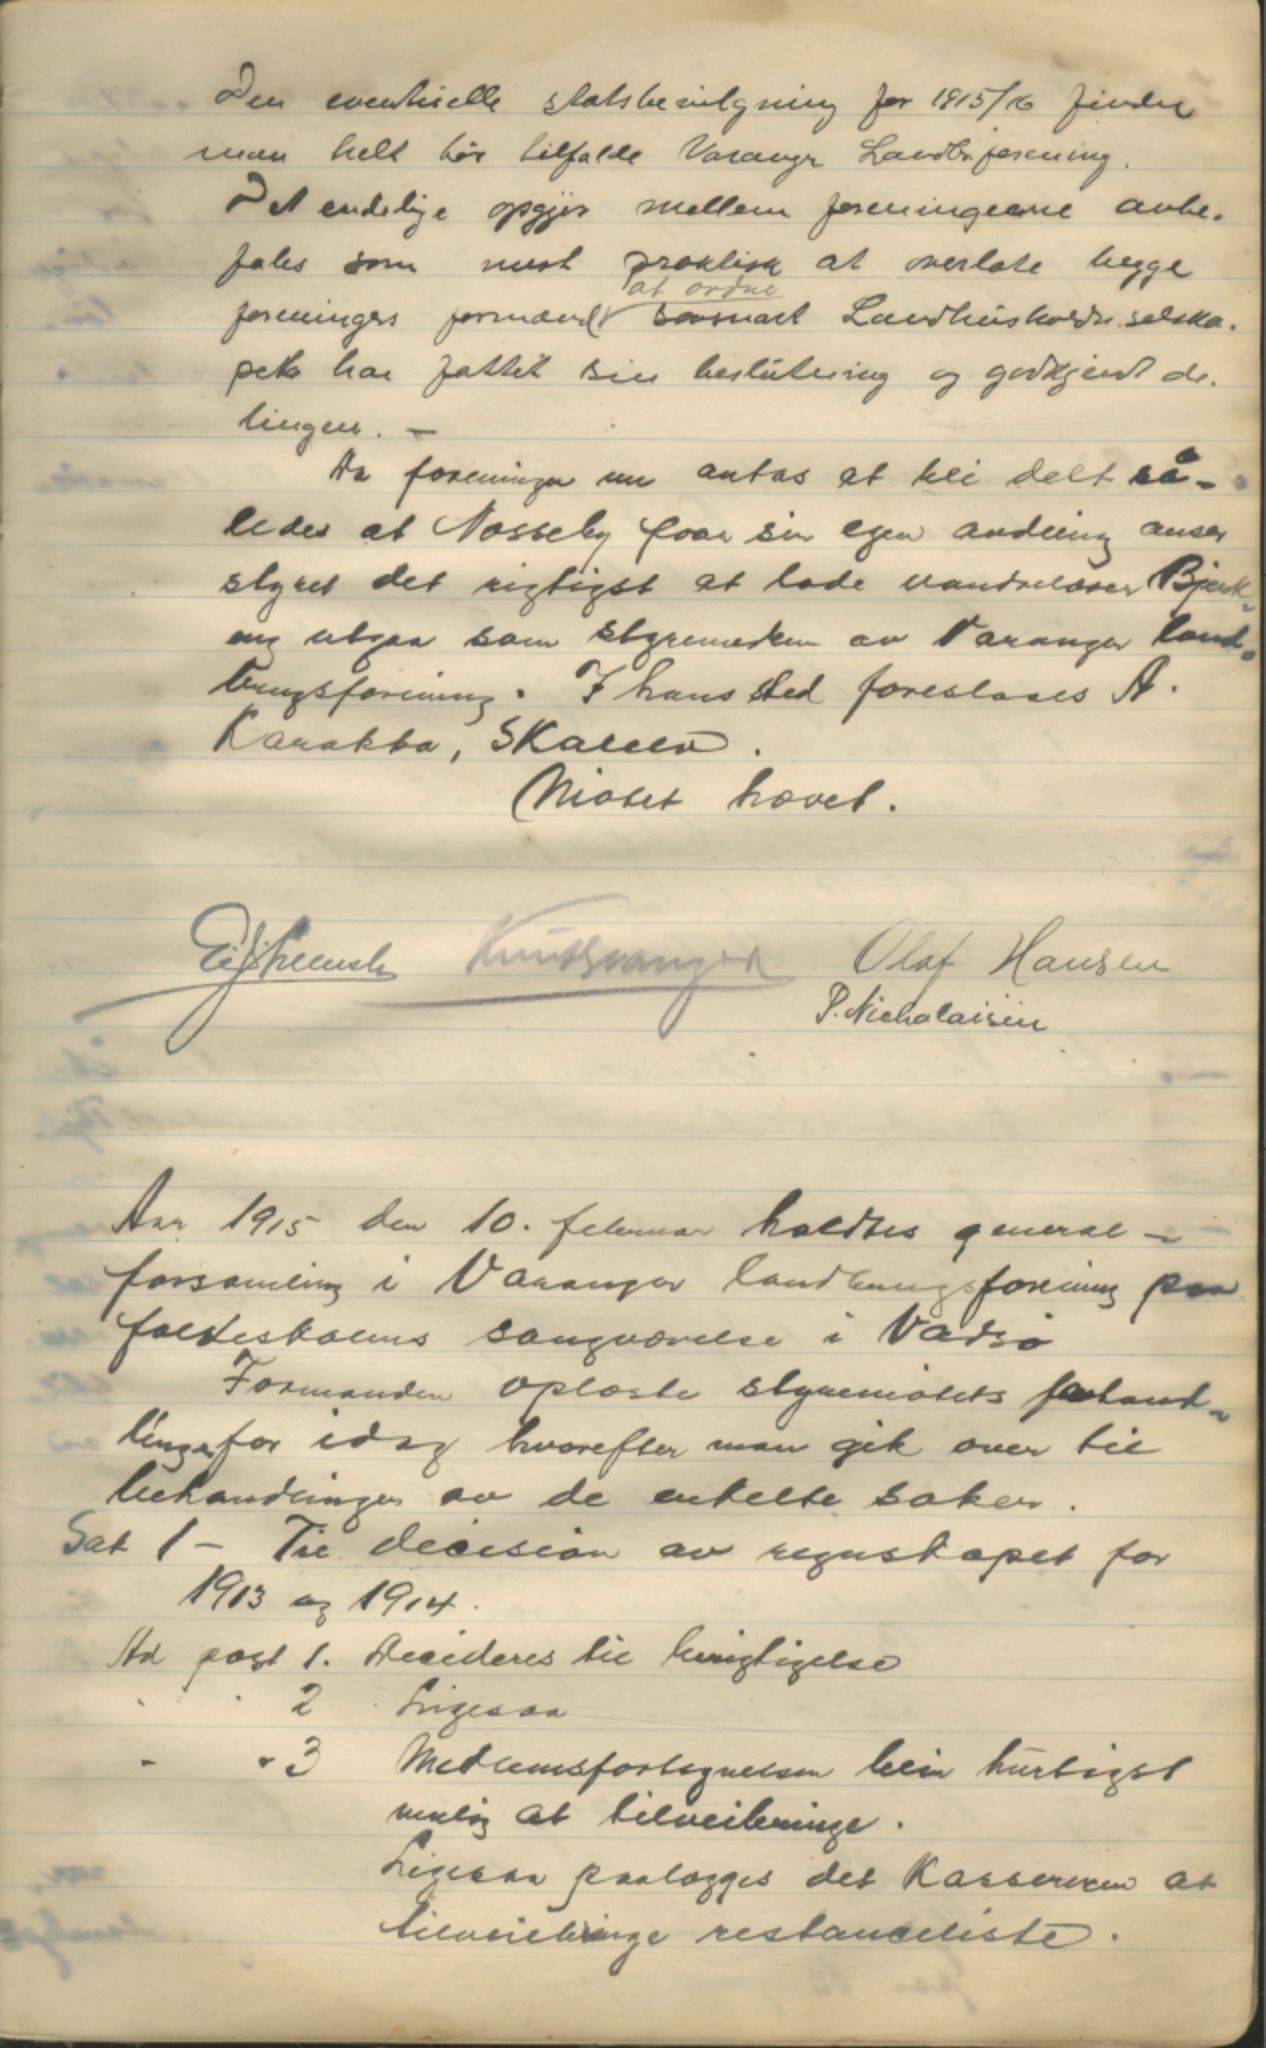 Den eventuelle statsbevilgning for 1915/16 finder
man helt bør tilfalde Varanger Landbr.forening.
Det endelige opgjør mellem foreningerne anbe-
fales som mest praktisk at overlate begge
foreningers formænd at ordne saasnart Landhusholdn.selska-
pet har fattet sin beslutning og godkjendt de-
lingen. —
Da foreningen nu antas at bli delt så-
ledes at Nesseby faar sin egen avdeling anser
styret det rigtigst at lade vandrelærer Bjerk-
eng utgaa som styremedlem av Varanger land-
bruksforening. I hans sted foreslaaes A.
Karakka, Skallelv.
Møtet hævet.
Olaf Hansen
P. Nicholaisen
Aar 1915 den 10. februar holdtes general-
forsamling i Varanger landbrugsforening paa
folkeskolens sangværelse i Vadsø
Formanden oplæste styremøtets forhand-
linger for idag hvorefter man gik over til
behandlingen av de enkelte saker.
Sak 1 — Til decision av regnskapet for
1913 og 1914.
Ad post 1. Decideres til berigtigelse
" " 2 Ligesaa
" " 3 Medlemsfortegnelsen blir hurtigst
mulig at tilveibringe.
Ligesaa paalægges det Kassereren at
tilveiebringe restanceliste.